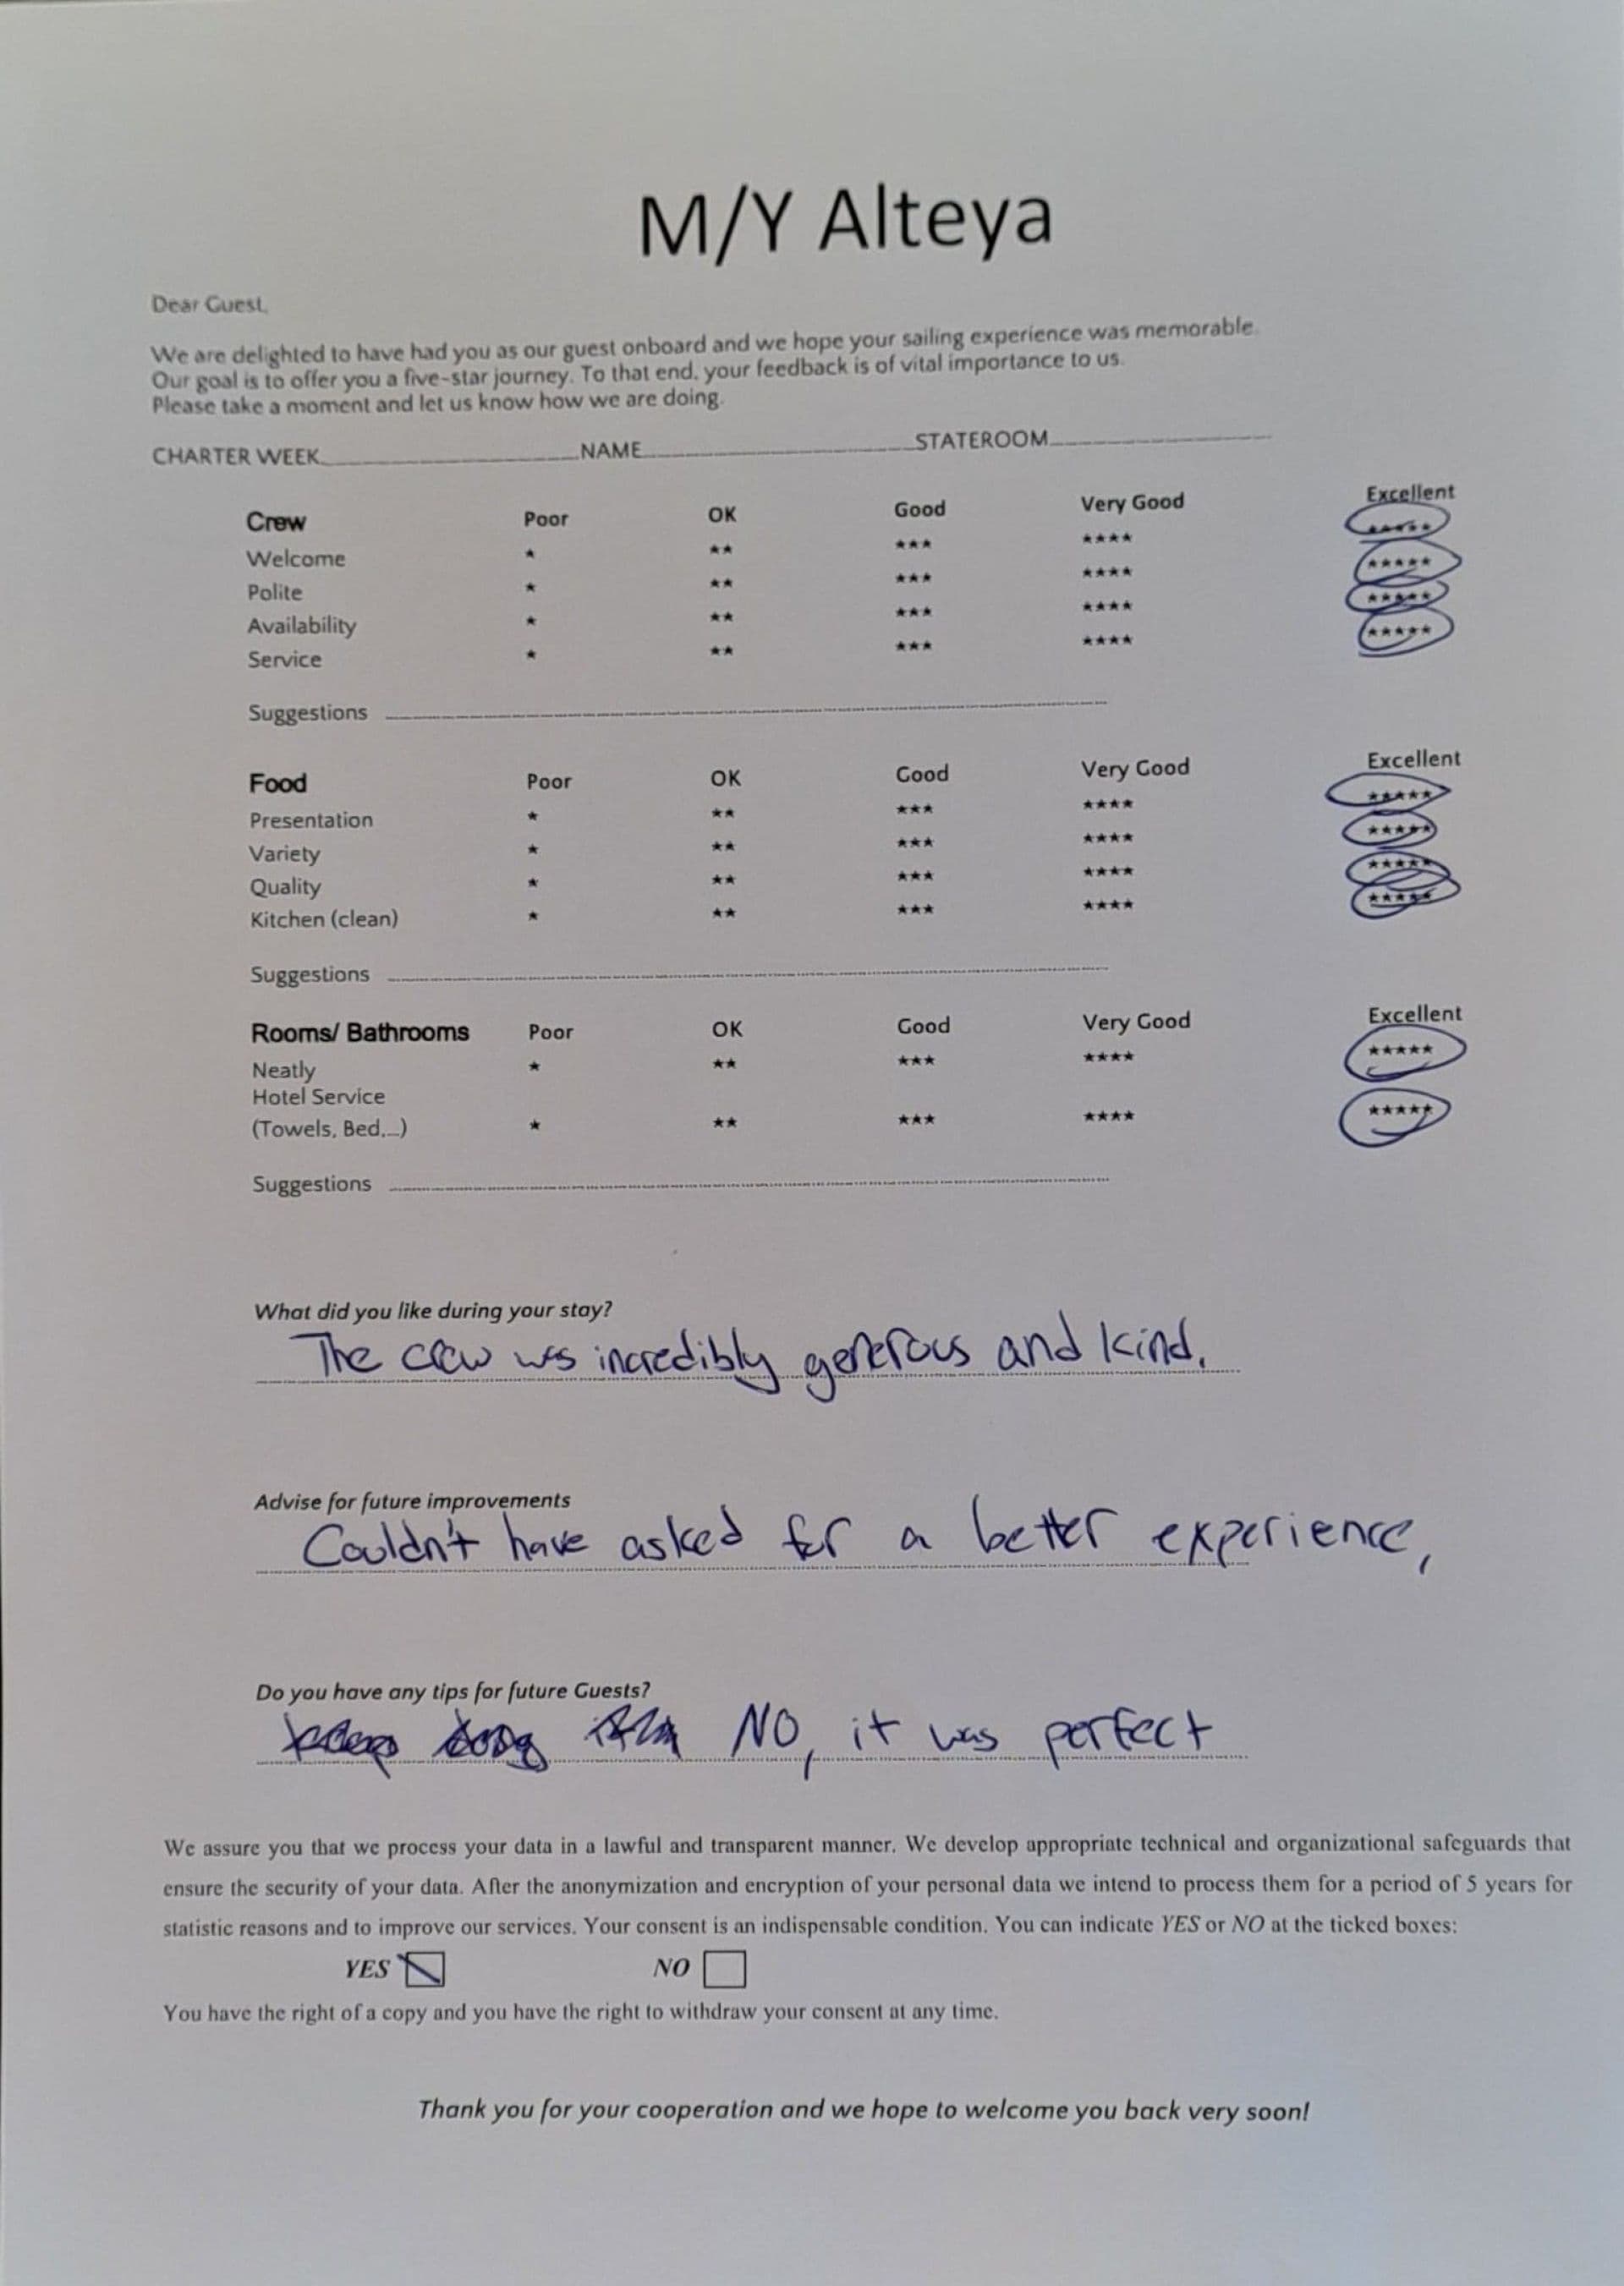 M/Y Alteya
Dear Guest,
We are delighted to have had you as our guest onboard and we hope your sailing experience was memorable.
Our goal is to offer you a five-star journey. To that end, your feedback is of vital importance to us.
Please take a moment and let us know how we are doing.
CHARTER WEEK NAME STATEROOM
Crew Poor OK Good Very Good Excellent
Welcome * ** *** **** *****
Polite * ** *** **** *****
Availability * ** *** **** *****
Service * ** *** **** *****
Suggestions
Food Poor OK Good Very Good Excellent
Presentation * ** *** **** *****
Variety * ** *** **** *****
Quality * ** *** **** *****
Kitchen (clean) * ** *** **** *****
Suggestions
Rooms/ Bathrooms Poor OK Good Very Good Excellent
Neatly * ** *** **** *****
Hotel Service
(Towels, Bed,...) * ** *** **** *****
Suggestions
What did you like during your stay?
The crew was incredibly generous and kind.
Advise for future improvements
Couldn't have asked for a better experience,
Do you have any tips for future Guests?
NO, it was perfect
We assure you that we process your data in a lawful and transparent manner. We develop appropriate technical and organizational safeguards that
ensure the security of your data. After the anonymization and encryption of your personal data we intend to process them for a period of 5 years for
statistic reasons and to improve our services. Your consent is an indispensable condition. You can indicate YES or NO at the ticked boxes:
YES NO
You have the right of a copy and you have the right to withdraw your consent at any time.
Thank you for your cooperation and we hope to welcome you back very soon!